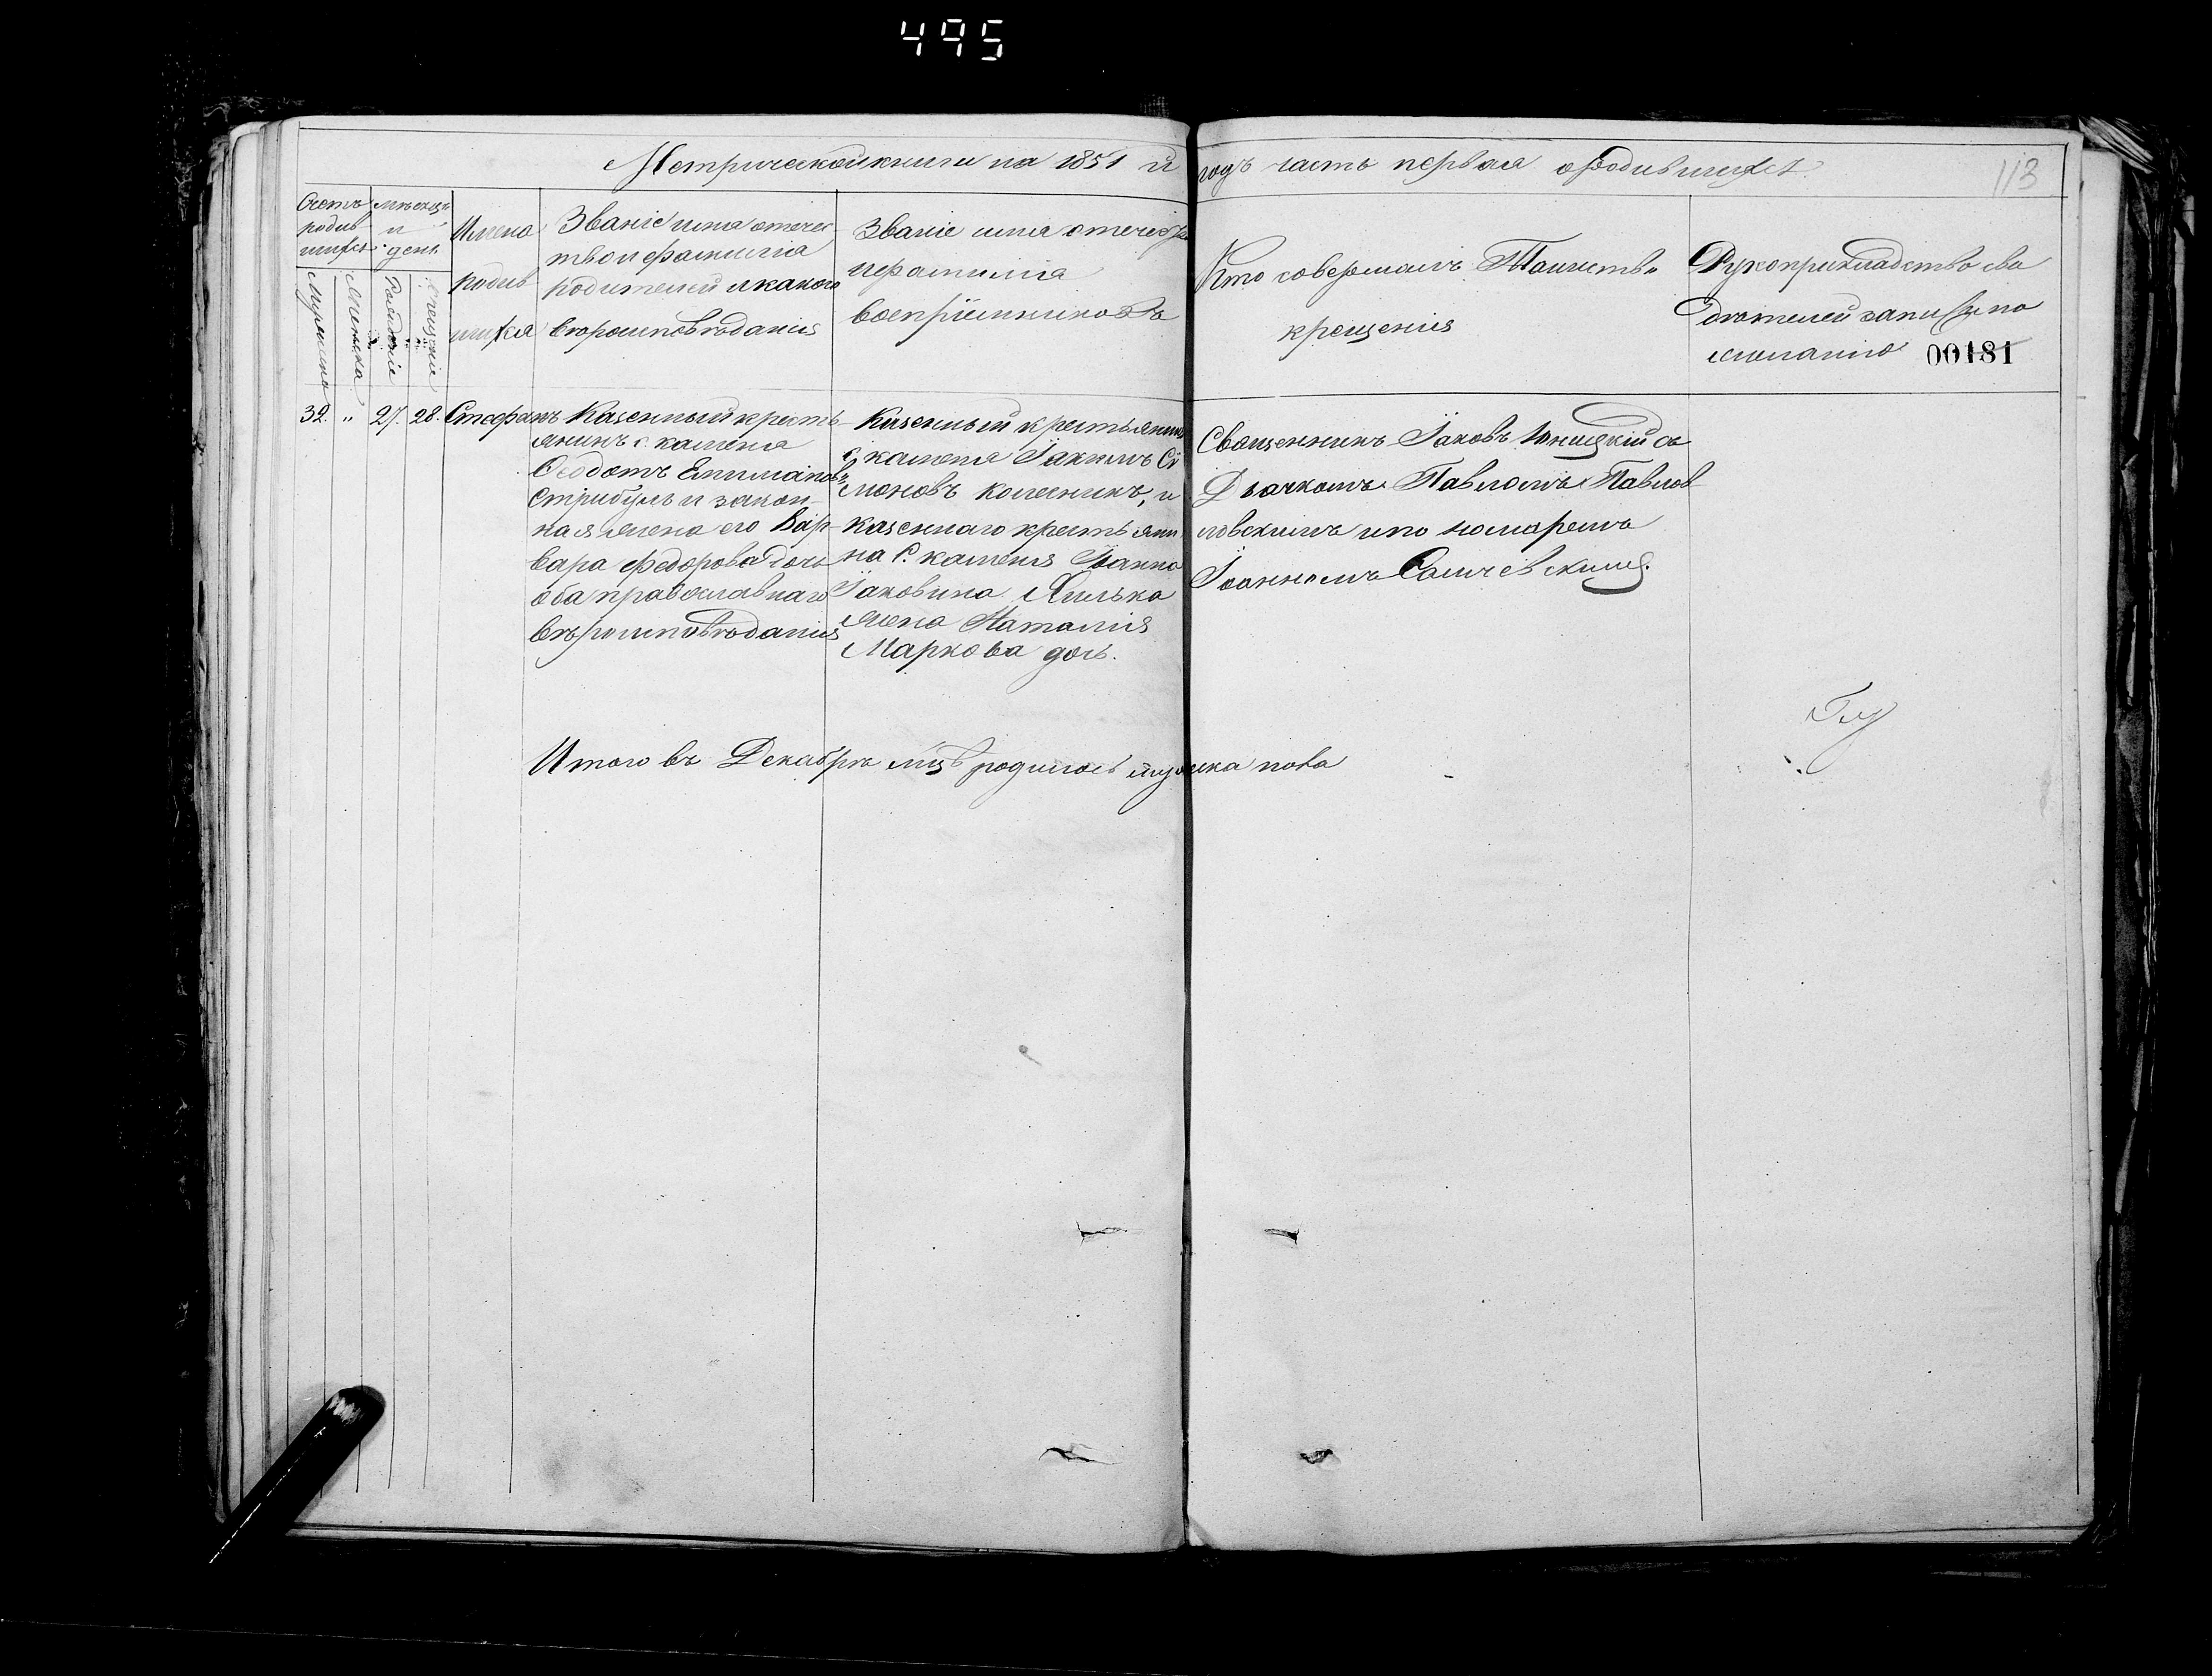 495
Метрической книги на 1851 й годъ часть первая о родившихся
113
Счетъ родив шихся
Мужеска
Женска
Мѣсяцъ и день
Рожденіе
Крещеніе
Имена
родив
шихся
Званіе имя отчес
тво и фамилія
родителей и какого
вѣроисповѣданія
Званіе имя отчество
и фамилія
воспріемниковъ
Кто совершалъ Таинство
крещенія
Рукоприкладство сви
дѣтелей записи по
желанію
00181
32. „ 27. 28. Стефанъ
Казенный кресть
янинъ с. каменя
Ѳеодотъ Епиманов
Стрибуль и закон
ная жена его Вар
вара Федорова дочь
оба православнаго
вѣроисповѣданія
Казенный крестьянинъ
с каменя Іакимъ Си
моновъ колесникъ, и
казеннаго крестьяни
на с. каменя Іоанна
Іаковина
жена Наталія
Маркова дочь.
Священникъ Іаковъ Юницкій съ
Дьячкомъ Павломъ Павлов
ловскимъ и пономаремъ
Іоанномъ
Итого въ Декабрѣ мцѣ родилось мужеска пола